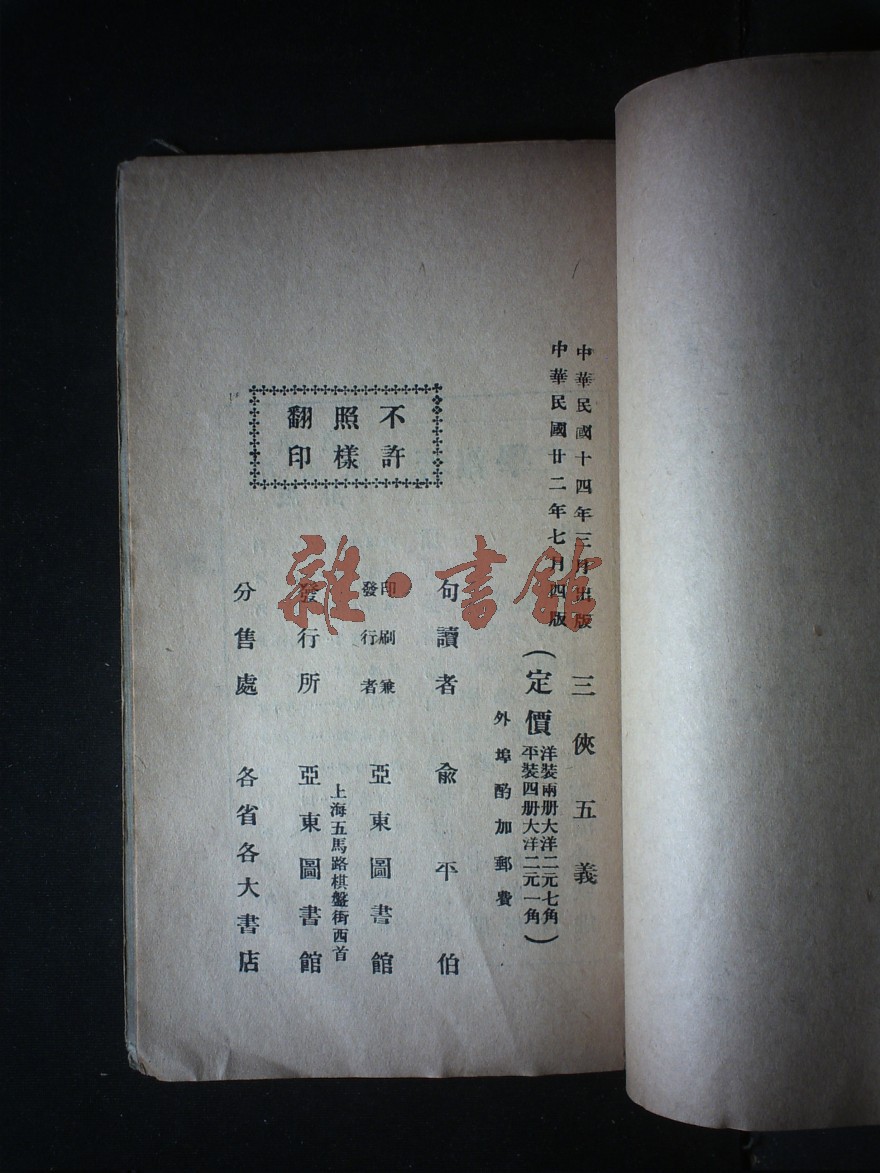 中華民國十四年三月出版
中華民國廿二年七月四版
三俠五義
(定價
洋裝兩册大洋二元七角
平裝四册大洋二元一角)
外埠酌加郵費
不許
照樣
翻印
句讀者 俞平伯
印刷兼
發行者
亞東圖書館
上海五馬路棋盤街西首
發行所 亞東圖書館
分售處 各省各大書店
雜·書館